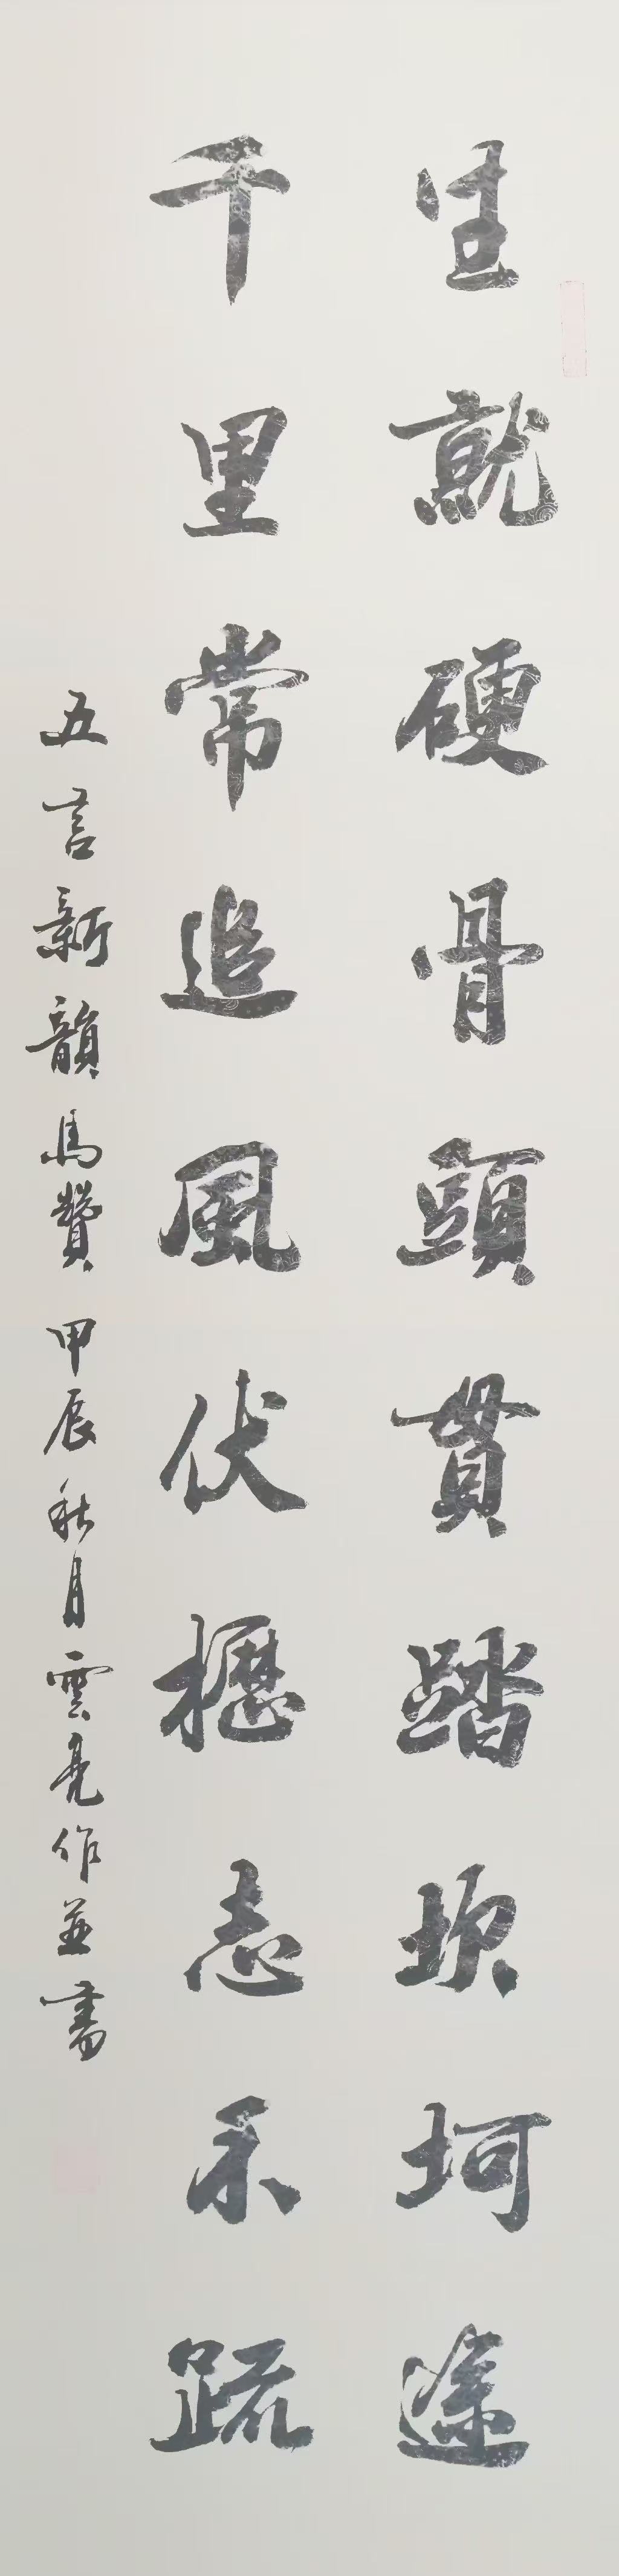 生就硬骨頭貫踏坎坷途
千里常追風伏櫪志不疏
五言新韻馬贊甲辰秋月雲亮作並書